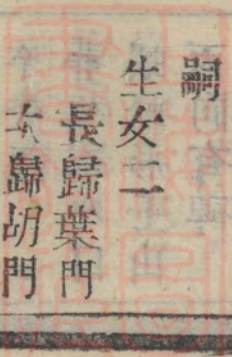 嗣
生女二
長歸葉門
次歸胡門